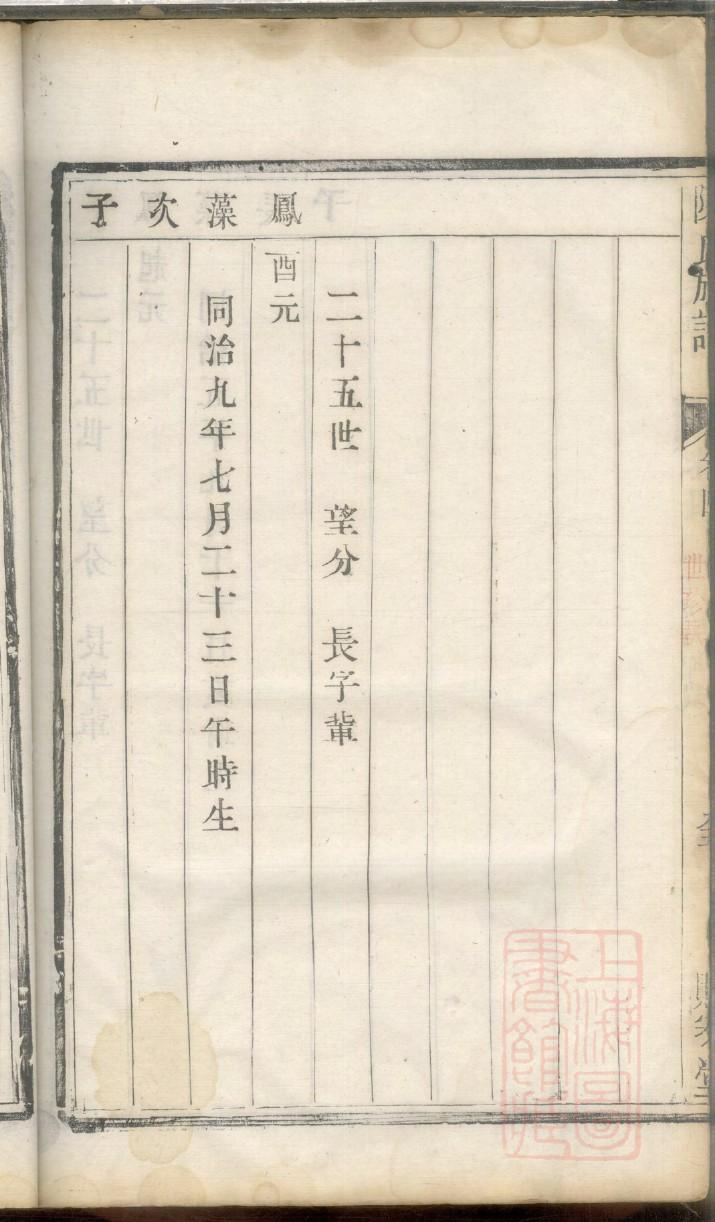 陳氏族譜
卷四
二十五世　望分　長字輩
鳳藻次子
酉元
同治九年七月二十三日午時生
上海圖書館藏